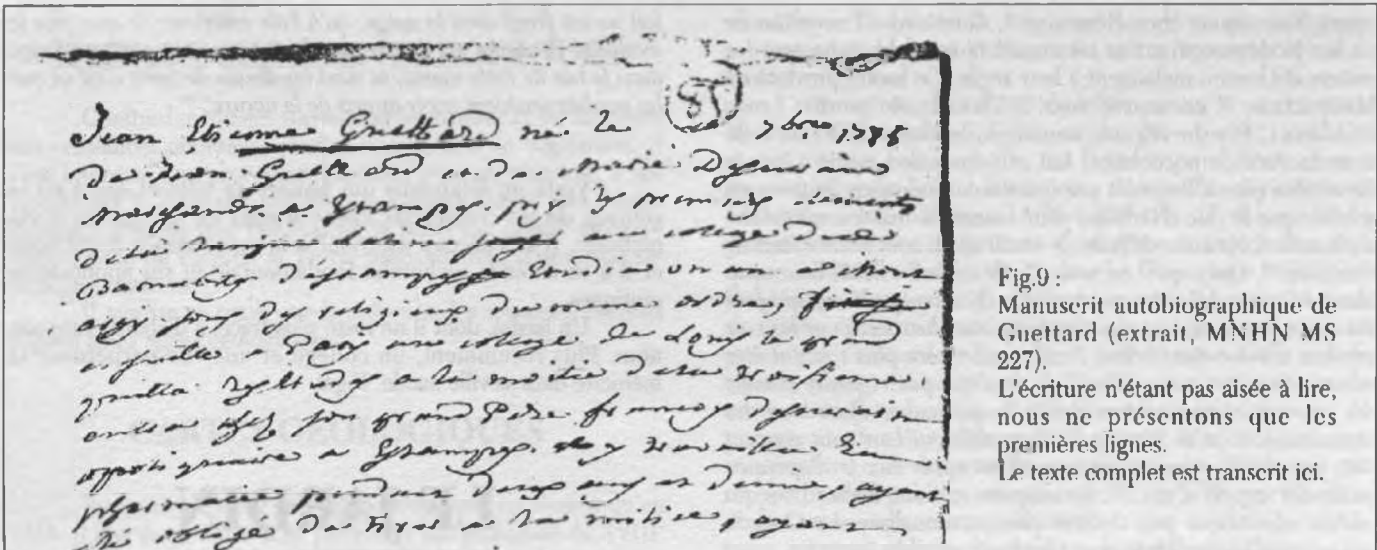 (85)
Jean Etienne Guettard né le 7bre 1715
De Jean Guettard et de Marie Desurain
marchands a Estampes. fit les premiers elements
de la langue latine au college des
Barnabites d'estampes Etudia un an a
chez des religieux du meme ordre,
a Paris au college de Louis le grand
la moitié de la troisieme
entra chez son grand Pere françois Desurain
apotiquaire a Estampes. y travailla En
pharmacie pendant deux ans et demie, ayant
été obligé de tirer a la milice, ayant
Fig.9 :
Manuscrit autobiographique de
Guettard (extrait, MNHN MS
227).
L'écriture n'étant pas aisée à lire,
nous ne présentons que les
premières lignes.
Le texte complet est transcrit ici.